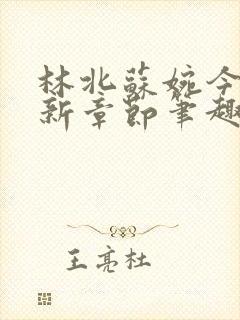 林北蘇婉今
新章節筆趣
王亮杜